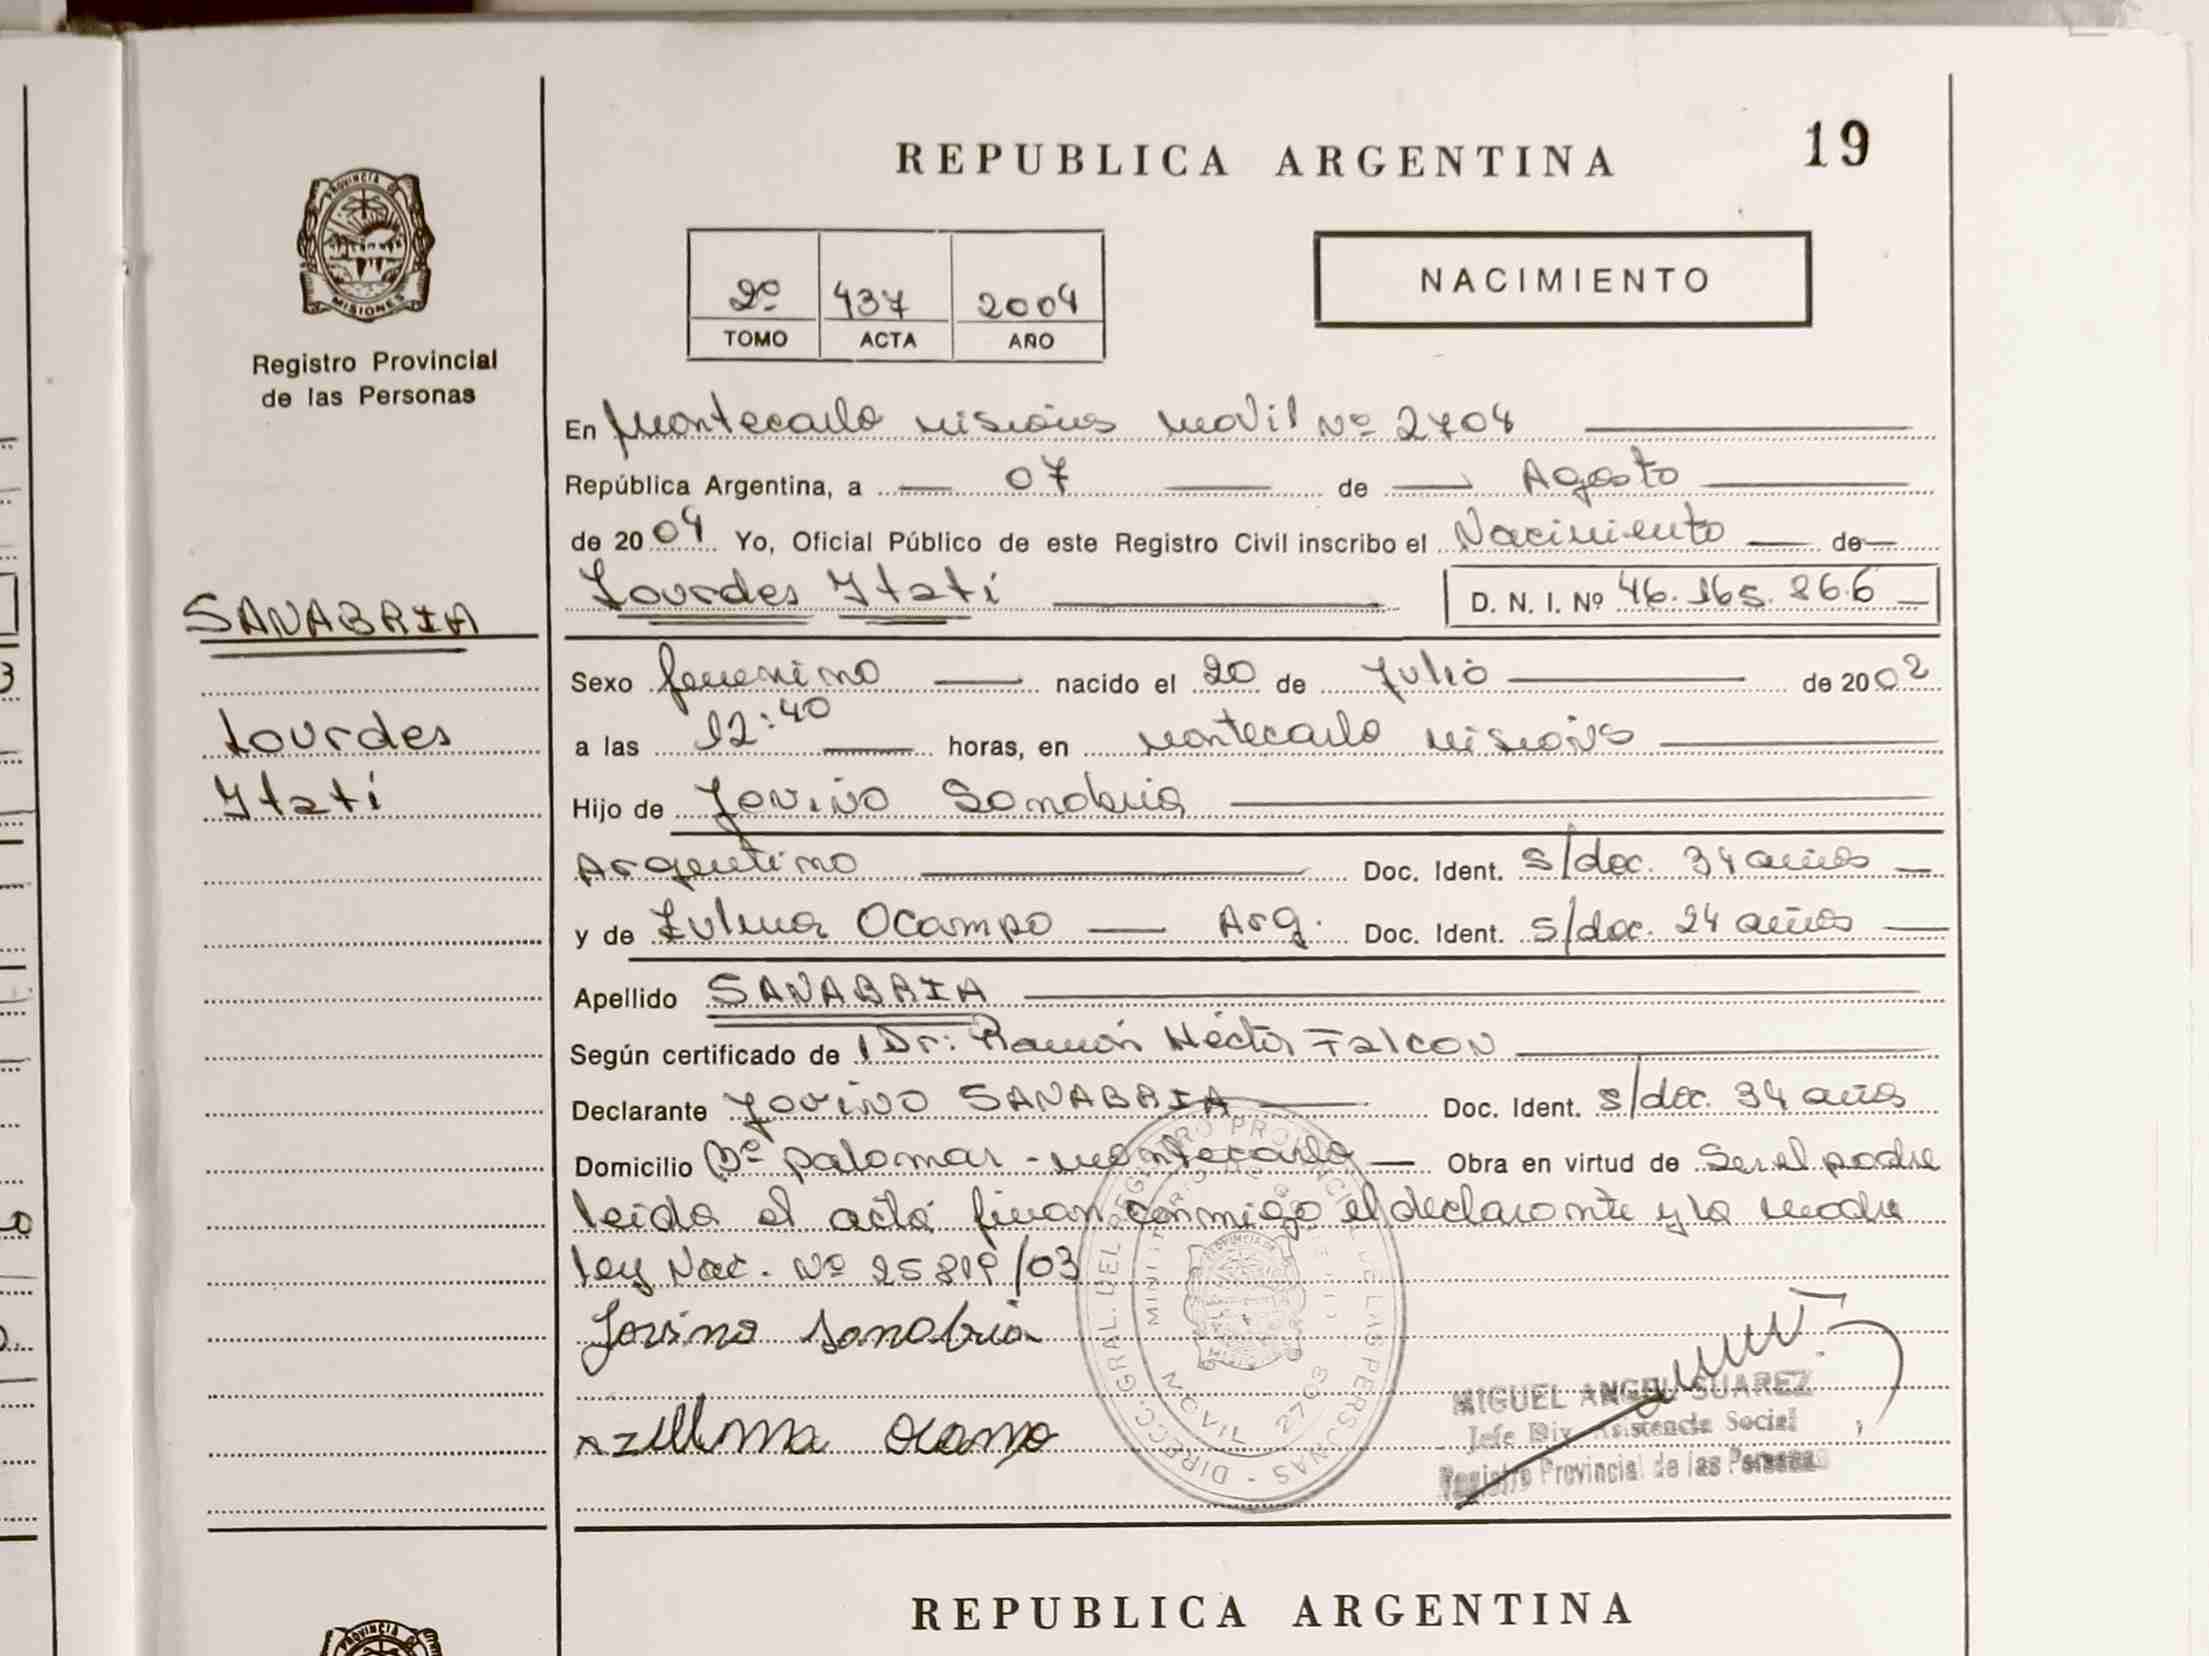 REPUBLICA ARGENTINA
19
PROVINCIA DE
MISIONES
Registro Provincial
de las Personas
2º 437 2004
TOMO ACTA AÑO
NACIMIENTO
En Montecarlo Misiones Movil Nº 2704
República Argentina, a 07 de Agosto
de 2004 Yo, Oficial Público de este Registro Civil inscribo el Nacimiento de
Lourdes Itatí D. N. I. Nº 46.165.866
SANABRIA
Lourdes
Itatí
Sexo femenino nacido el 20 de Julio de 2002
a las 12:40 horas, en Montecarlo Misiones
Hijo de Jovino Sanabria
Argentino Doc. Ident. s/doc. 34 años
y de Zulma Ocampo Arg. Doc. Ident. s/doc. 24 años
Apellido SANABRIA
Según certificado de Dr: Ramón Héctor Falcon
Declarante Jovino SANABRIA Doc. Ident. s/doc. 34 años
Domicilio Bº Palomar - Montecarlo Obra en virtud de Ser el padre
leida el acta firman conmigo el declarante y la madre
ley Nac. Nº 25819/03
Jovino Sanabria
DIRECC. GRAL. DEL REGISTRO PROVINCIAL DE LAS PERSONAS
MOVIL 2703
MIGUEL ANGEL SUAREZ
Jefe Div. Asistencia Social
Registro Provincial de las Personas
REPUBLICA ARGENTINA
PROVINCIA DE